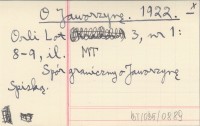 O Jaworzynę. 1922.
Orli Lot 3, nr 1:
8-9, il. MT
Spór graniczny o Jaworzynę
Spiską.